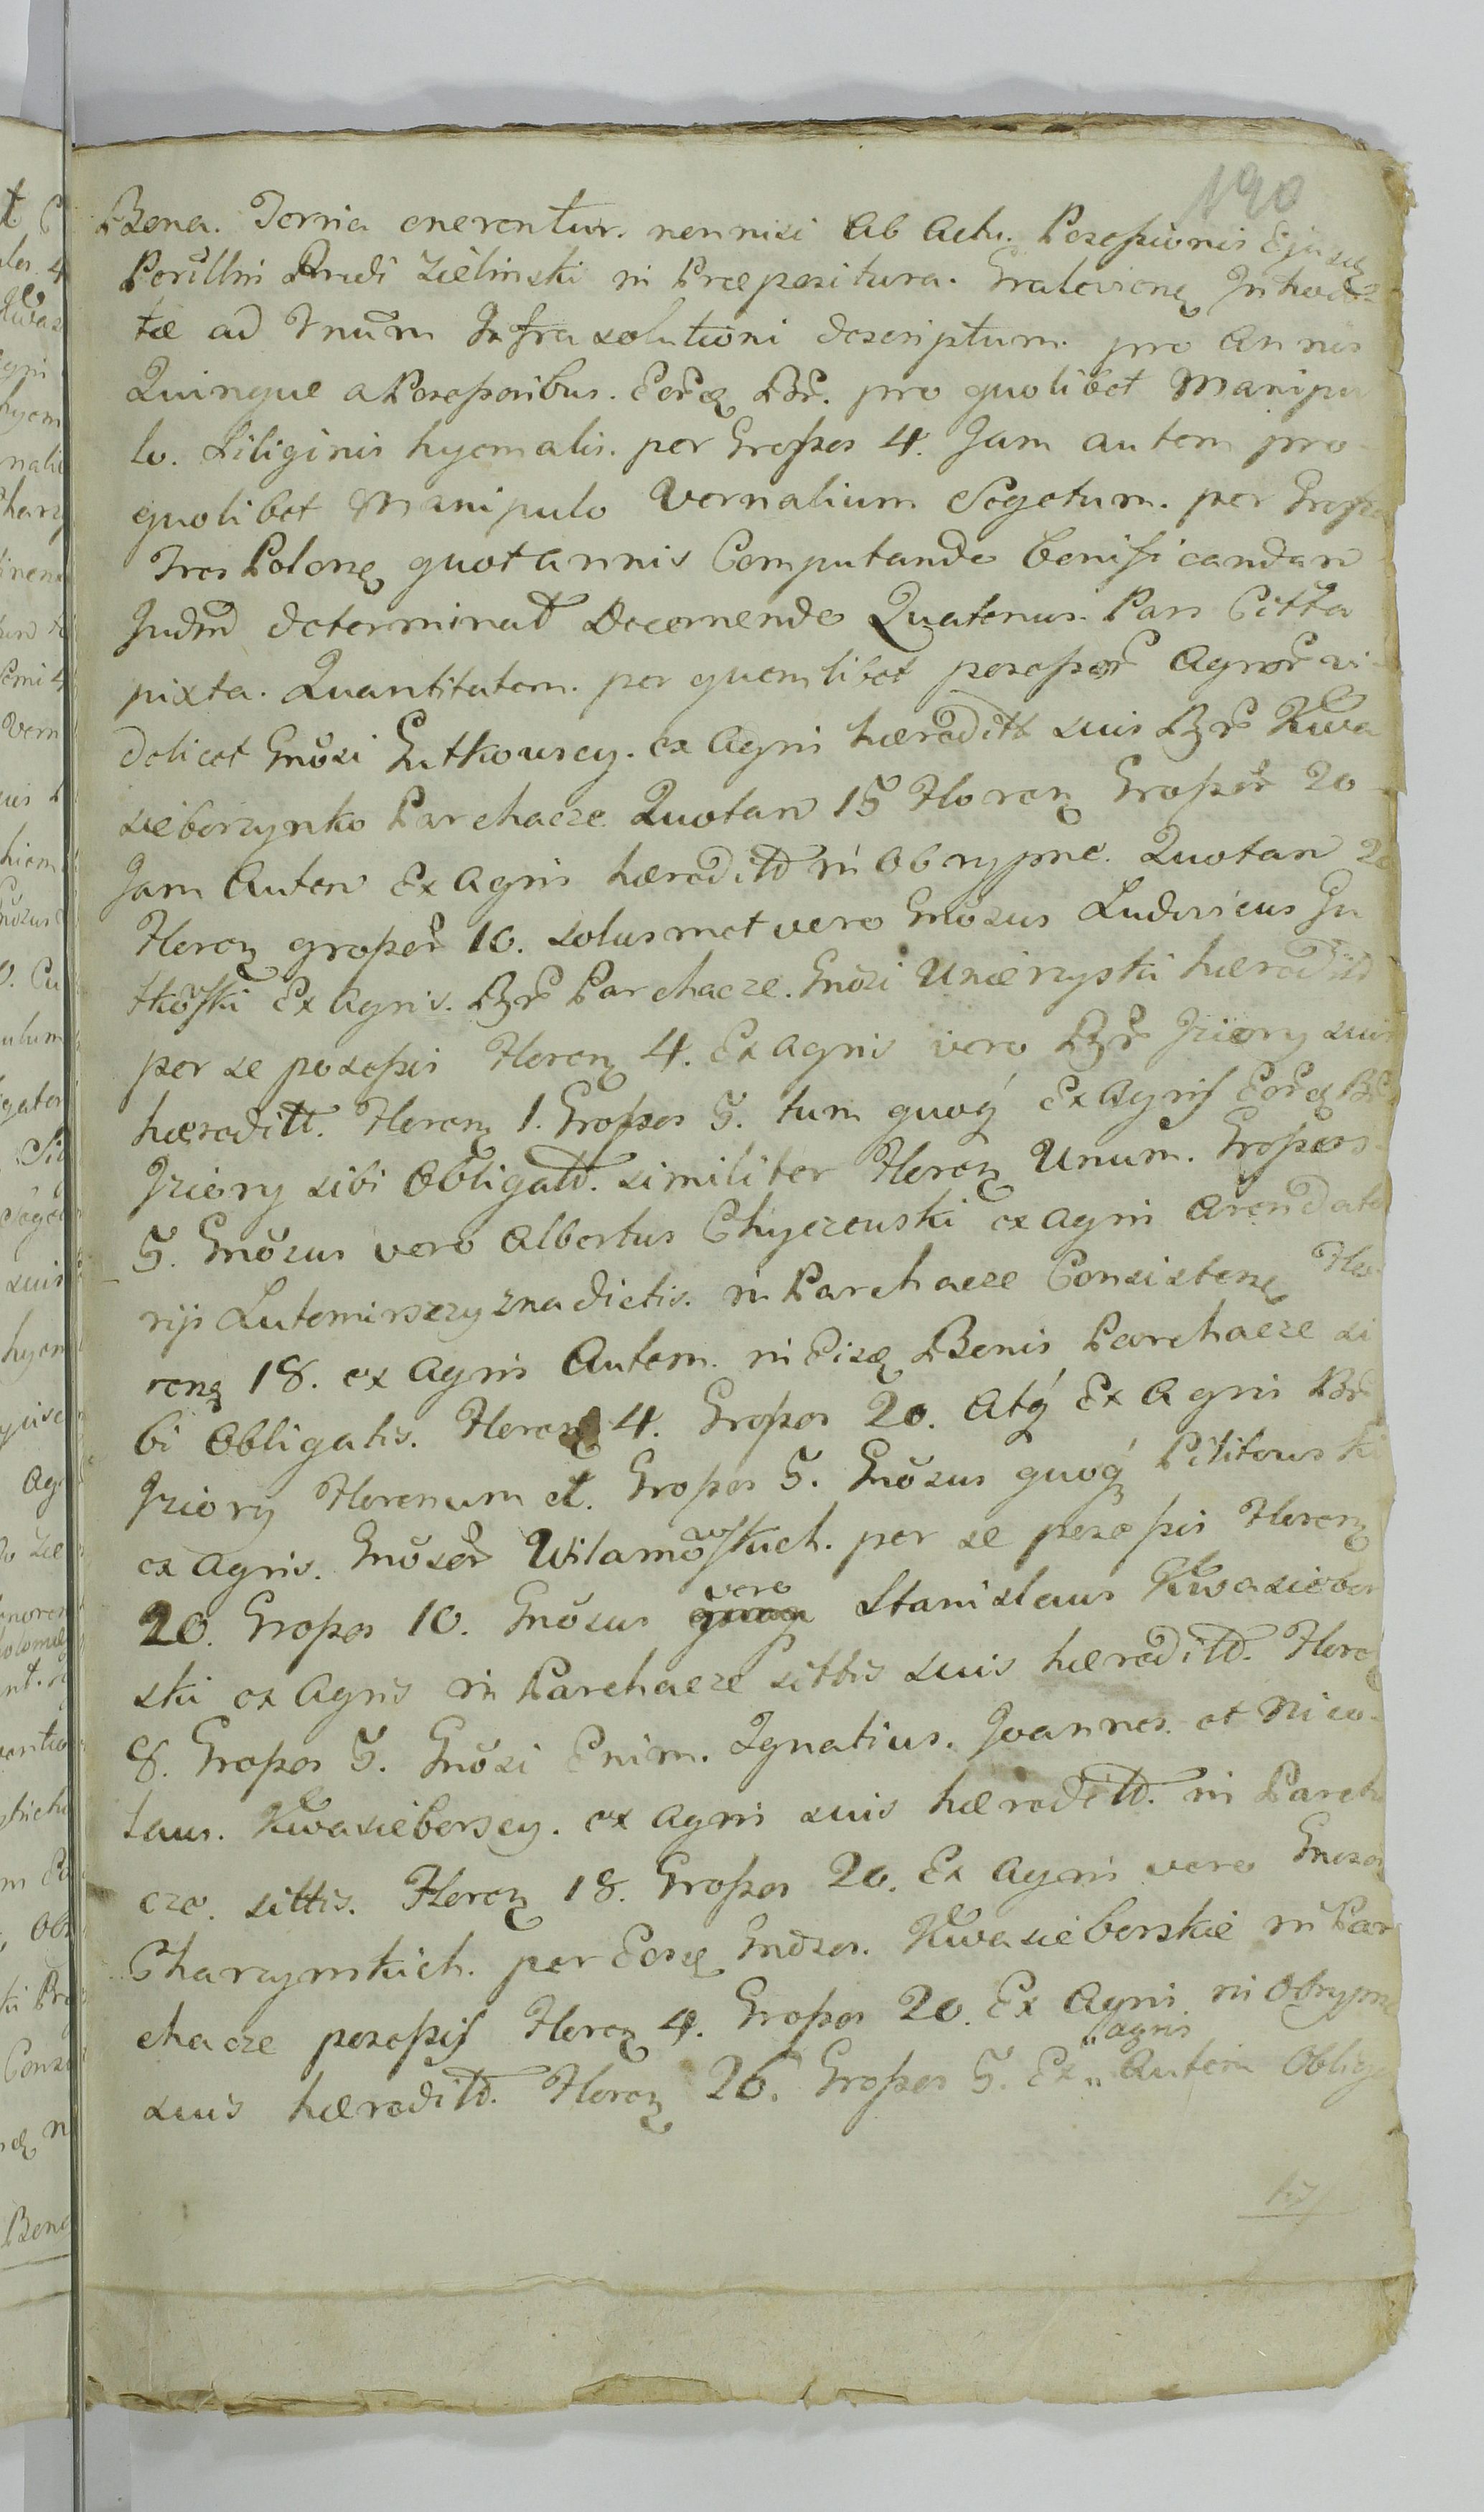 190
Bona. Terria onerentur. nonnisi ab Actu. Possessionis Ejusdę
Perillri Rndi Zielinski in Præpositura. Gralevienę Inchoa-
tæ ad Tnum Infra solutioni descriptum. pro Annis
Quinque a Possessoribus. Eorūdę Br. pro quolibet Manipu
lo. Siliginis hyemalis. per Grossos 4. Jam autem pro
quolibet Manipulo Vernalium Segetum. per Grossos
Tres Polonę quotannis Computando bonificandam
Judm determinat Decernendo Quatenus. Pars Citta
juxta. Quantitatem. per quemlibet possessor Agror vi-
delicet Gnosi Gutkowscy. ex Agris hæreditt suis Br Kwa
sieborzynko Parchacze Quotan 15 Florenę Grossor 20
Jam Autem Ex Agris hæreditd in Obrypne. Quotan 20
Florenę grossor 10. solusmet vero Gnosus Ludovicus Gu
tkowski Ex Agris. Br Parchacze. Gnosi Unierzyski hæreditd
per se possessis Florenę 4. Ex Agris vero Br Jziory suis
hæreditt. Florenę 1. Grossos 5. tum quoq Ex Agris Eorūdę Br
Jziory sibi Obligatd. similiter Florenę Unum. Grossos
5. Gnosus vero Albertus Chyczewski ex Agris Arendato
rijs Lutomirszczyzna dictis. in Parchacze Consistenę Flo
renę 18. ex Agris Autem. in Eisdę Bonis Parchacze si
bi Obligatis. Florenę 4. Grossos 20. Atq Ex Agris Br
Jziory Florenum et. Grossos 5. Gnosus quoq Pilitowski
ex Agris. Gnosor Wilamowskich. per se possessis Florenę
20. Grossos 10. Gnosus vero Stanislaus Kwasiebor
ski ex Agris in Parchacze sittis suis hæreditd. Florenę
8. Grossos 5. Gnosi Enim. Ignatius. Joannes. et Nico-
laus. Kwasieborscy. ex Agris suis hæreditd. in Parcha
cze. sittis. Florenę 18. Grossos 20. Ex Agris vero Gnosor
Charzynskich. per Eosdę Gnosos. Kwasieborskie in Par
chacze possessis Florenę 4. Grossos 20. Ex Agris in Obrypne
suis hæreditd. Florenę 26. Grossos 5. Ex agris Autem Obliga